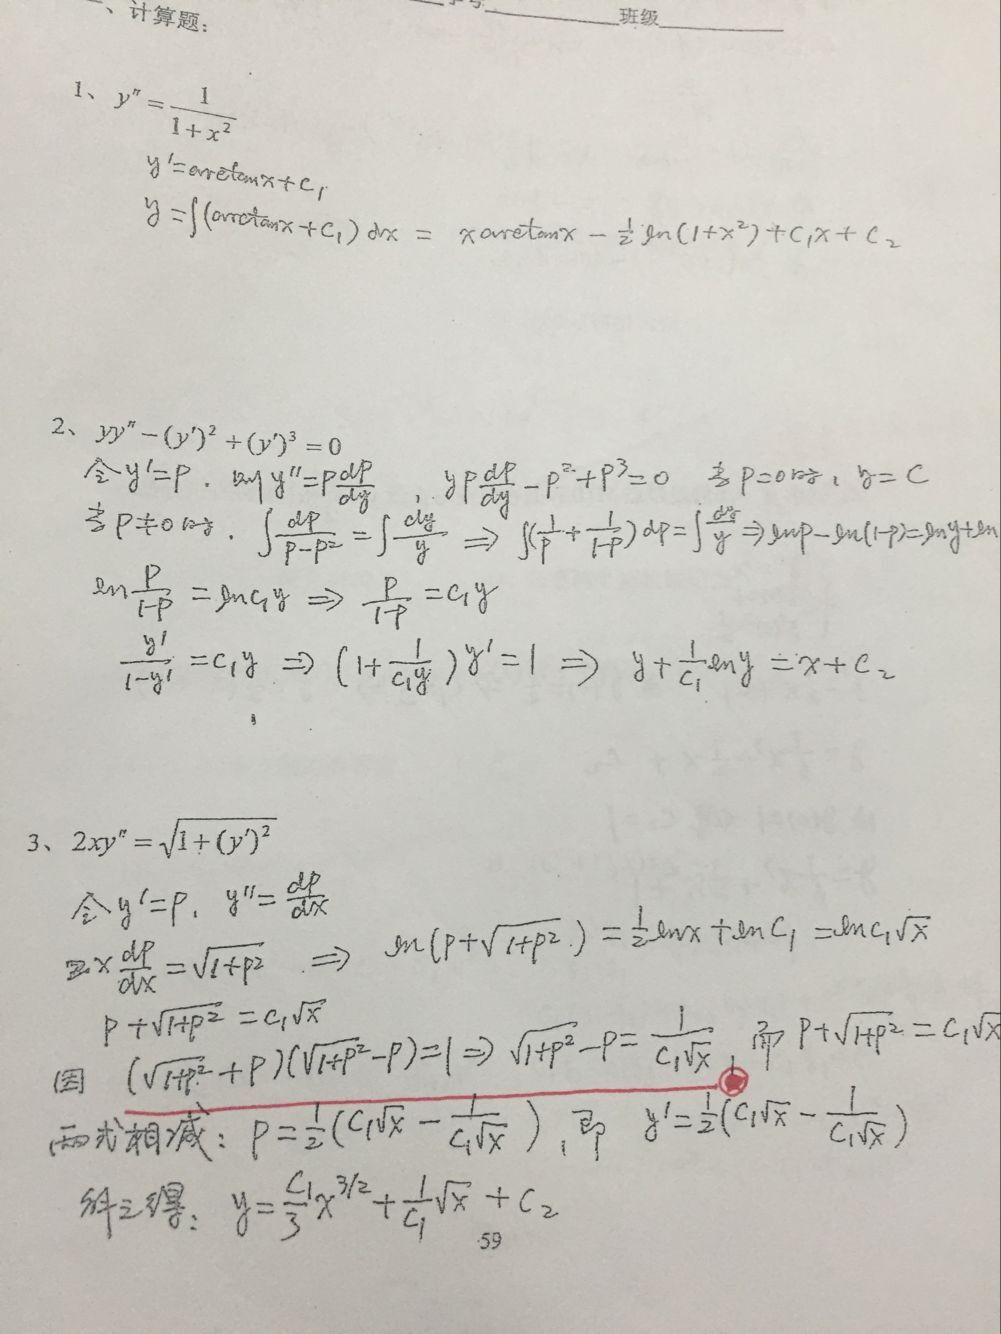 一、计算题:
班级
1、 y″ = 1/(1+x²)
y′=arctanx+C₁
y=∫(arctanx+C₁)dx = xarctanx - ½ln(1+x²)+C₁x+C₂
2、 yy″-(y′)²+(y′)³=0
令y′=p. 则y″=p dp/dy , yp dp/dy - p²+p³=0 当p=0时, y=C
当p≠0时. ∫dp/(p-p²)=∫dy/y ⇒ ∫(1/p+1/(1-p))dp=∫dy/y ⇒lnp-ln(1-p)=lny+ln
ln p/(1-p) = lnC₁y ⇒ p/(1-p) = C₁y
y′/(1-y′) = C₁y ⇒ (1+1/(C₁y))y′=1 ⇒ y+1/C₁ lny = x+C₂
3、 2xy″=√(1+(y′)²)
令y′=p. y″=dp/dx
2x dp/dx = √(1+p²) ⇒ ln(p+√(1+p²)) = ½lnx+lnC₁ = lnC₁√x
p+√(1+p²) = C₁√x
因 (√(1+p²)+p)(√(1+p²)-p)=1⇒ √(1+p²)-p= 1/(C₁√x) 而 p+√(1+p²)=C₁√x
两式相减: p=½(C₁√x - 1/(C₁√x)) , 即 y′=½(C₁√x - 1/(C₁√x))
解之得: y=C₁/3 x^{3/2}+1/C₁ √x + C₂
59